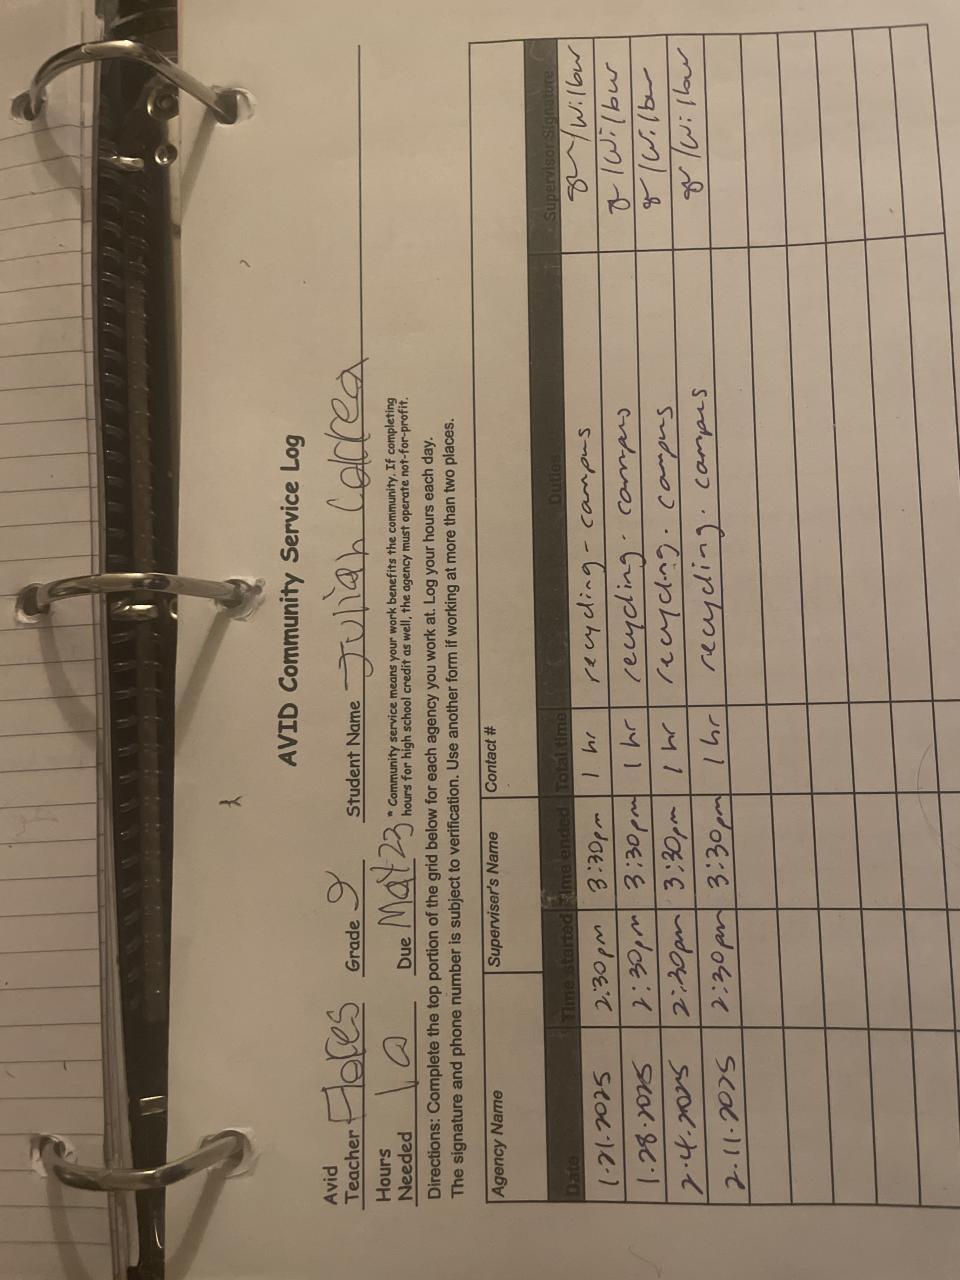 AVID Community Service Log
Avid
Teacher Flores Grade 9 Student Name Julian Correa
Hours
Needed 10 Due May 23 * Community service means your work benefits the community. If completing
hours for high school credit as well, the agency must operate not-for-profit.
Directions: Complete the top portion of the grid below for each agency you work at. Log your hours each day.
The signature and phone number is subject to verification. Use another form if working at more than two places.
Agency Name Superviser's Name Contact #
Date Time started Time ended Total time Duties Supervisor Signature
1.21.2025 2:30pm 3:30pm 1 hr recycling - campus /Wilbur
1.28.2025 2:30pm 3:30pm 1 hr recycling. campus /Wilbur
2.4.2025 2:30pm 3:30pm 1 hr recycling. campus /Wilbur
2.11.2025 2:30pm 3:30pm 1 hr recycling. campus /Wilbur